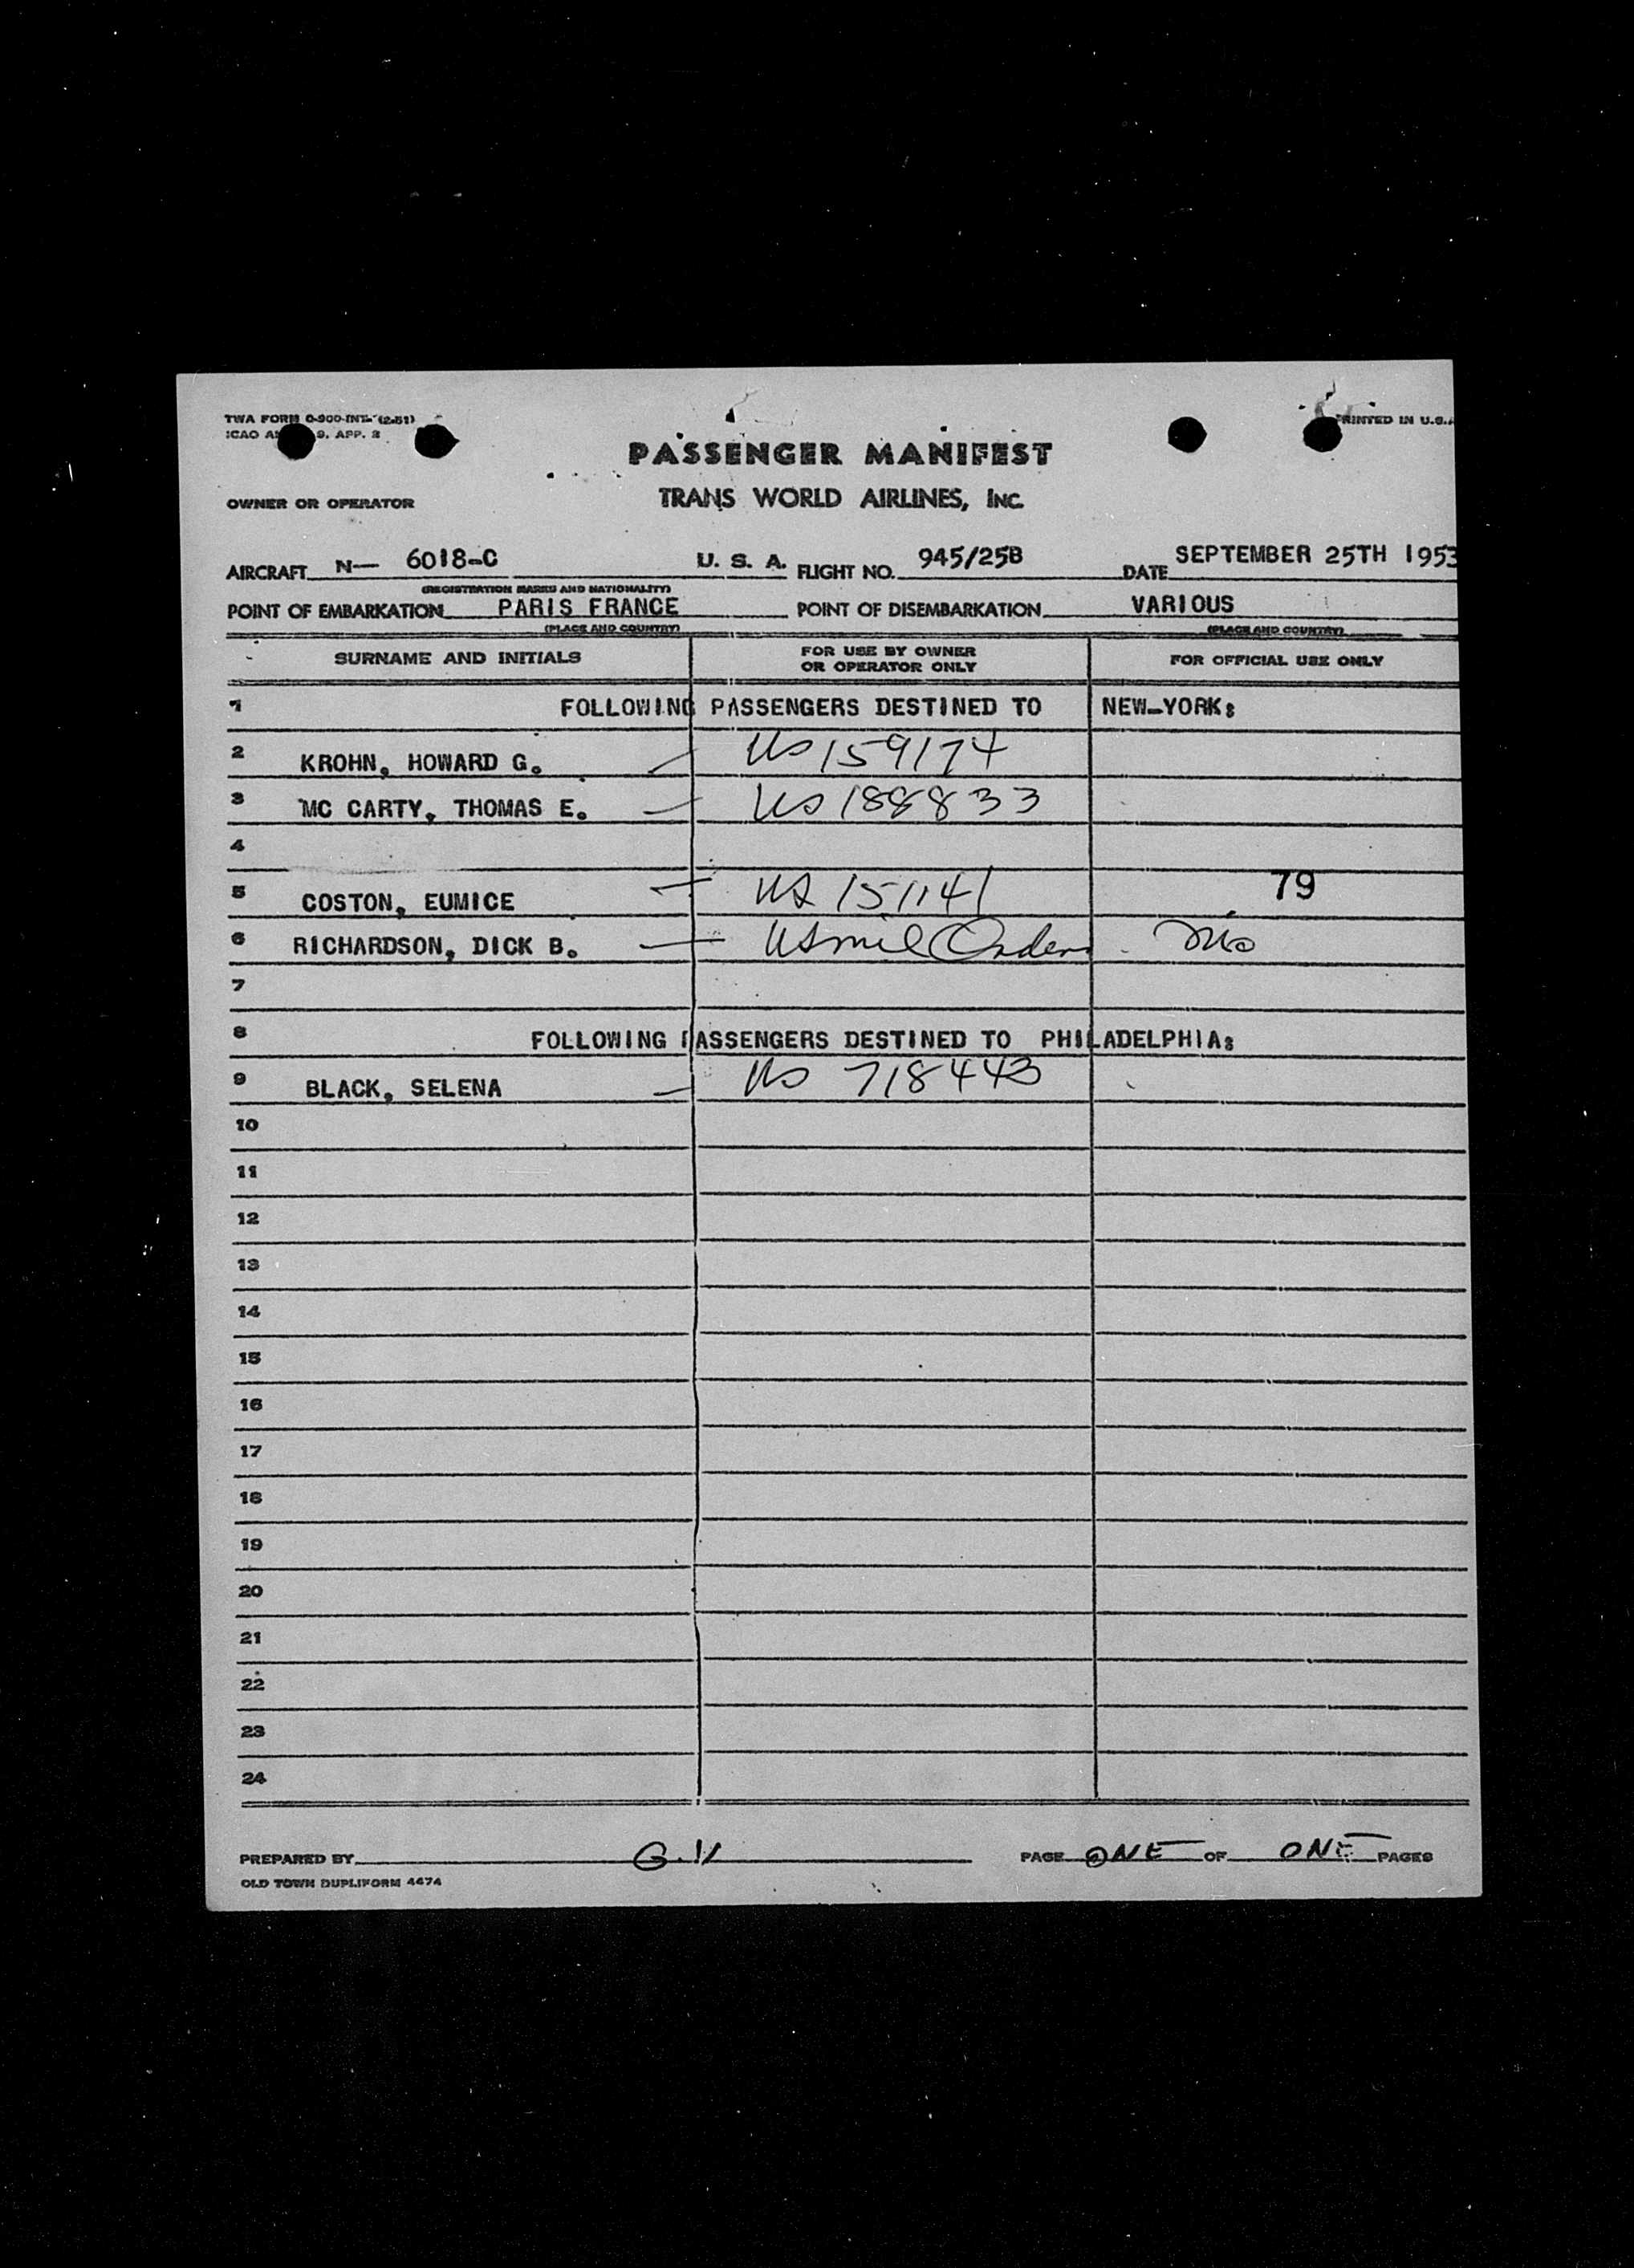 TWA FORM 0-900-INT- (2-51)
PRINTED IN U.S.A
ICAO 9, APP. 2
PASSENGER MANIFEST
OWNER OR OPERATOR
TRANS WORLD AIRLINES, INC.
AIRCRAFT N— 6018-C U. S. A. FLIGHT NO. 945/25B DATE SEPTEMBER 25TH 1953
(REGISTRATION MARKS AND NATIONALITY)
POINT OF EMBARKATION PARIS FRANCE POINT OF DISEMBARKATION VARIOUS
(PLACE AND COUNTRY) (PLACE AND COUNTRY)
SURNAME AND INITIALS FOR USE BY OWNER OR OPERATOR ONLY FOR OFFICIAL USE ONLY
1 FOLLOWING PASSENGERS DESTINED TO NEW-YORK:
2 KROHN, HOWARD G. — US 159174
3 MC CARTY, THOMAS E. — US 188833
4
5 COSTON, EUMICE — US 151141 79
6 RICHARDSON, DICK B. — US mil Orders
7
8 FOLLOWING PASSENGERS DESTINED TO PHILADELPHIA:
9 BLACK, SELENA — US 718443
10
11
12
13
14
15
16
17
18
19
20
21
22
23
24
PREPARED BY G.V PAGE ONE OF ONE PAGES
OLD TOWN DUPLIFORM 4474